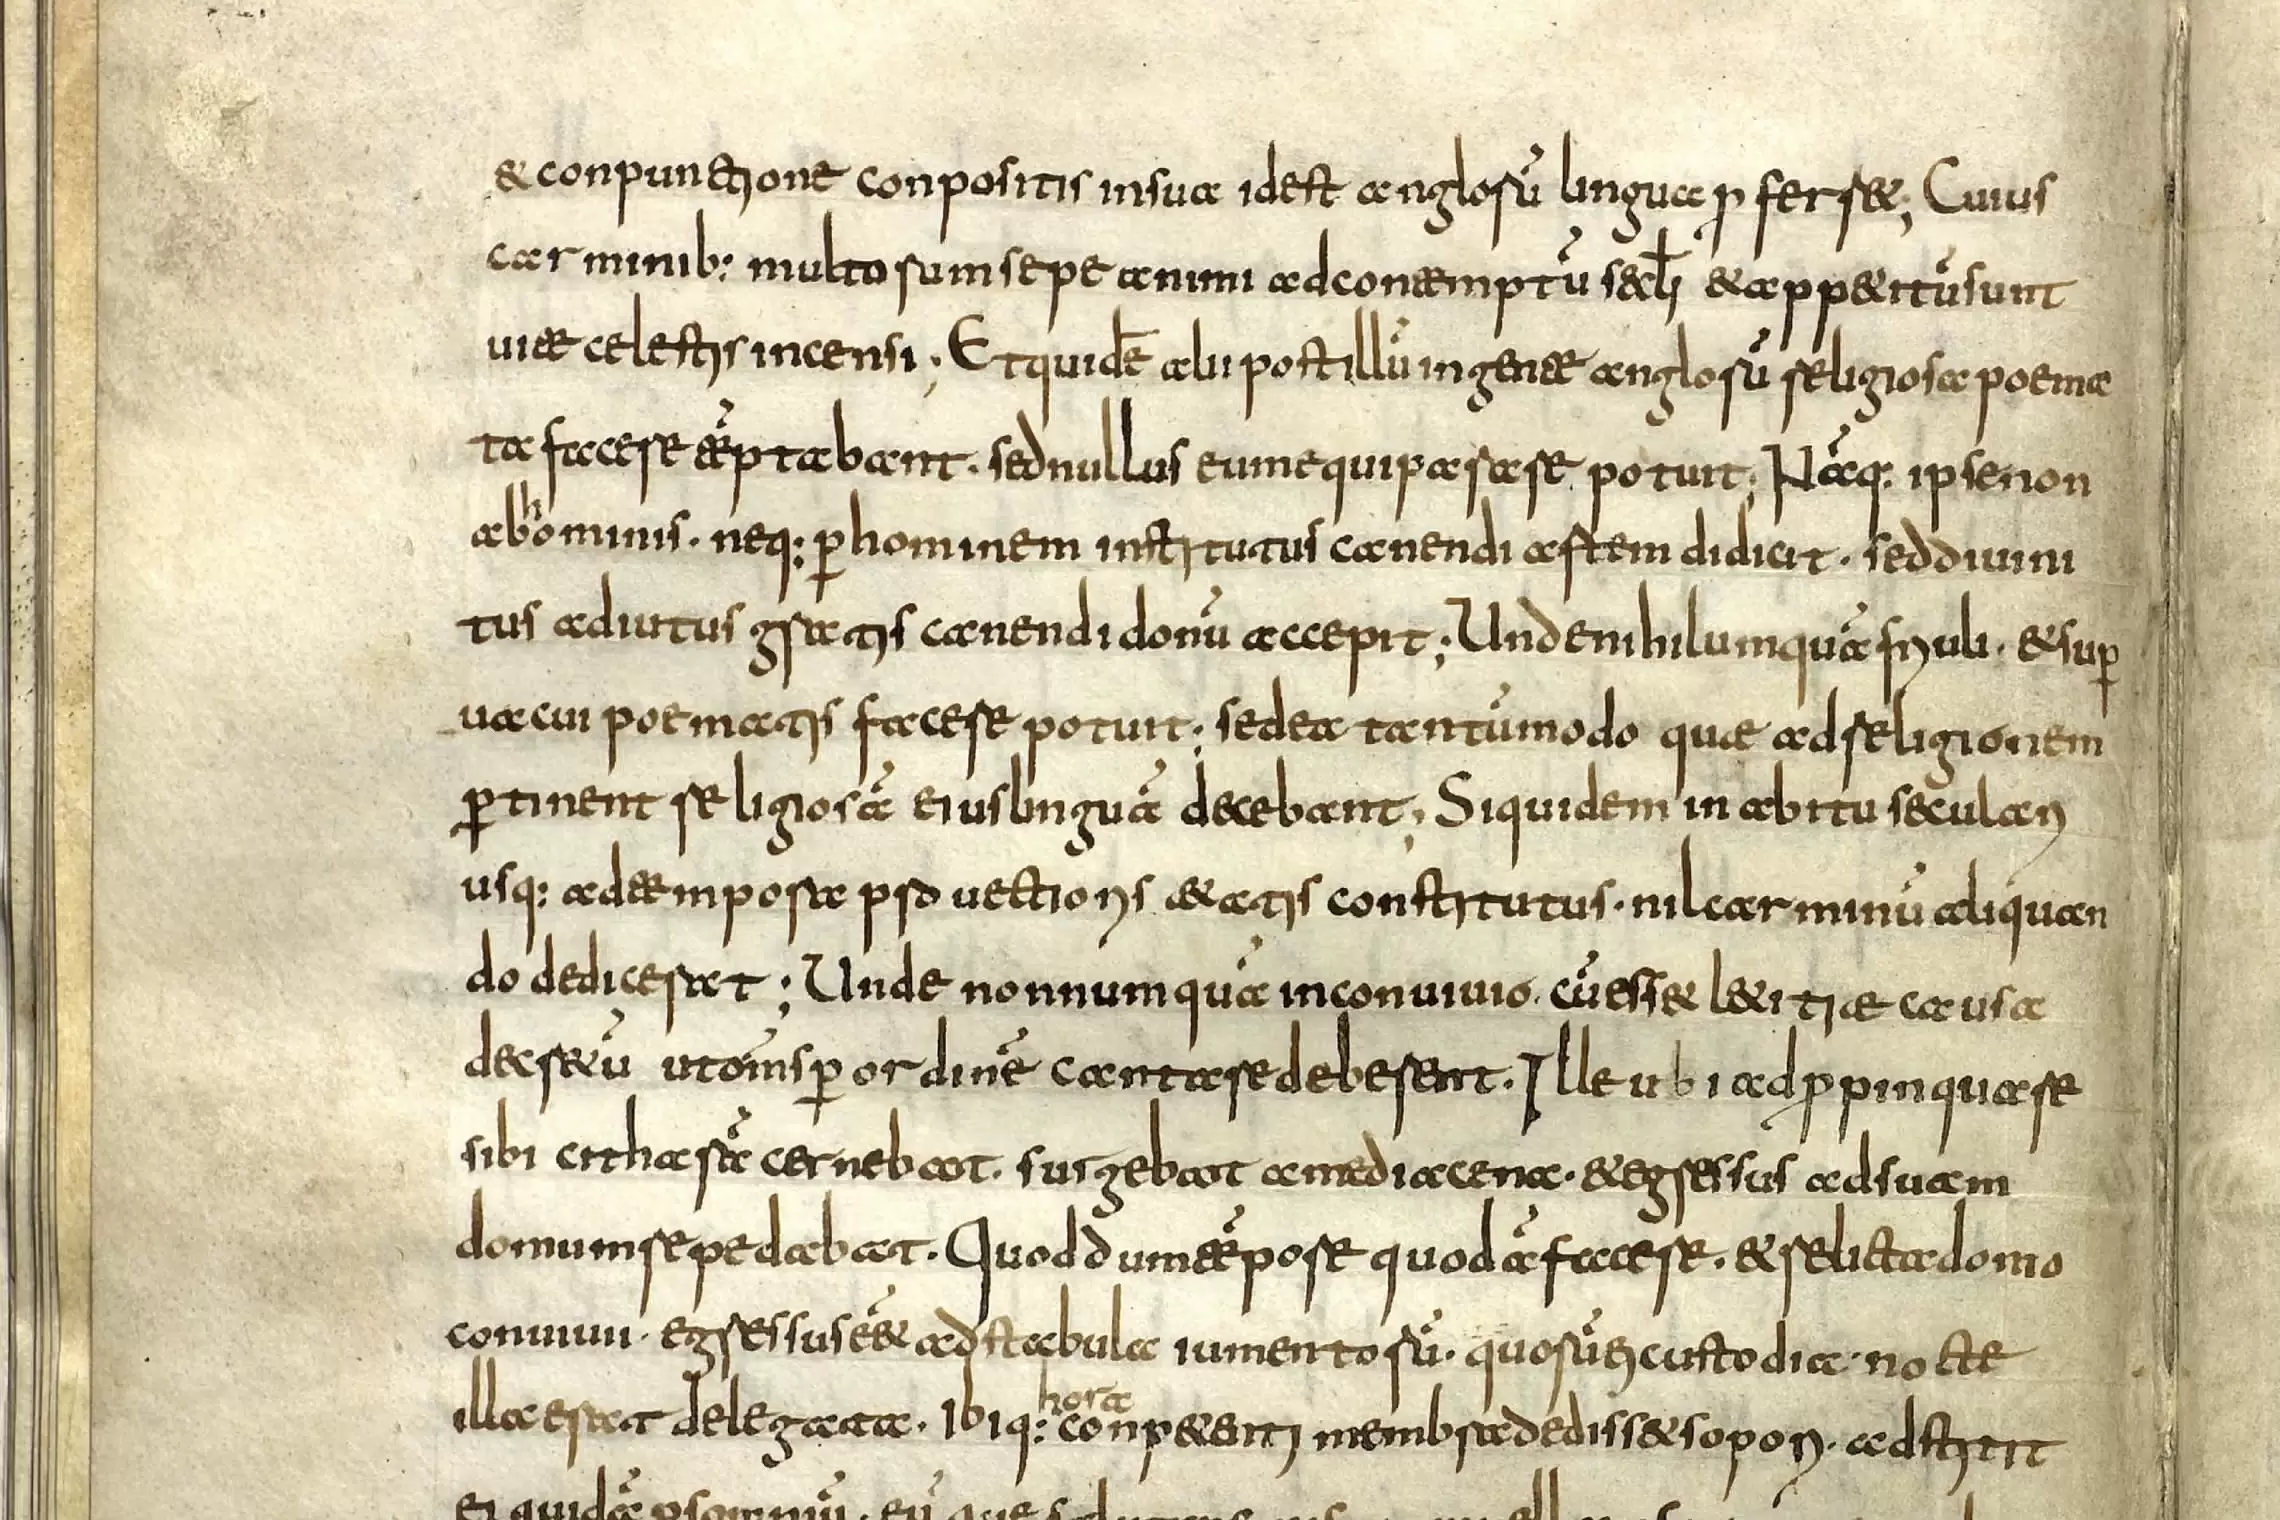 & conpunctione conpositis in sua id est anglorū lingua pferret; Cuius
carminib: multorum sepe animi ad contemptū sec̄li & appetitūsunt
uitae celestis incensi; Et quidē alii post illū in gente anglorū religiosa poema
ta facere tēptabant. sed nullus eum equiparare potuit; Nāq: ipse non
ab hominis. neq: ꝑ hominem institutus canendi artem didicit. sed diuini
tus adiutus gratis canendi donū accepit; Unde nihil umquā friuoli. & suꝑ
uacui poematis facere potuit; sed ea tantūmodo quae ad religionem
ꝑtinent religiosā eius linguā decebant; Siquidem in abitu seculari
usq: ad tempora prouectioris aetatis constitutus. nil carminū aliquan
do dedicerat; Unde nonnumquā in conuiuio. cū esset laetitiae causa
decretū ut om̄s ꝑ ordinē cantare deberent. Ille ubi adpropinquare
sibi citharā cernebat. surgebat a media cena. & egressus ad suam
domum repedabat. Quod dum tēpore quodā faceret. & relicta domo
conuiuii. egressus eēt ad stabula iumentorū. quorū ei custodia nocte
illa erat delegata. Ibiq: hora conpetenti membra dedisset sopori. adstitit
ei quidā p somniū. eūque